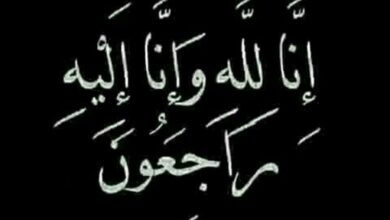 إنَّا للَّه وَإنَّا إلَيْهِ
رَاَجَعُونَ